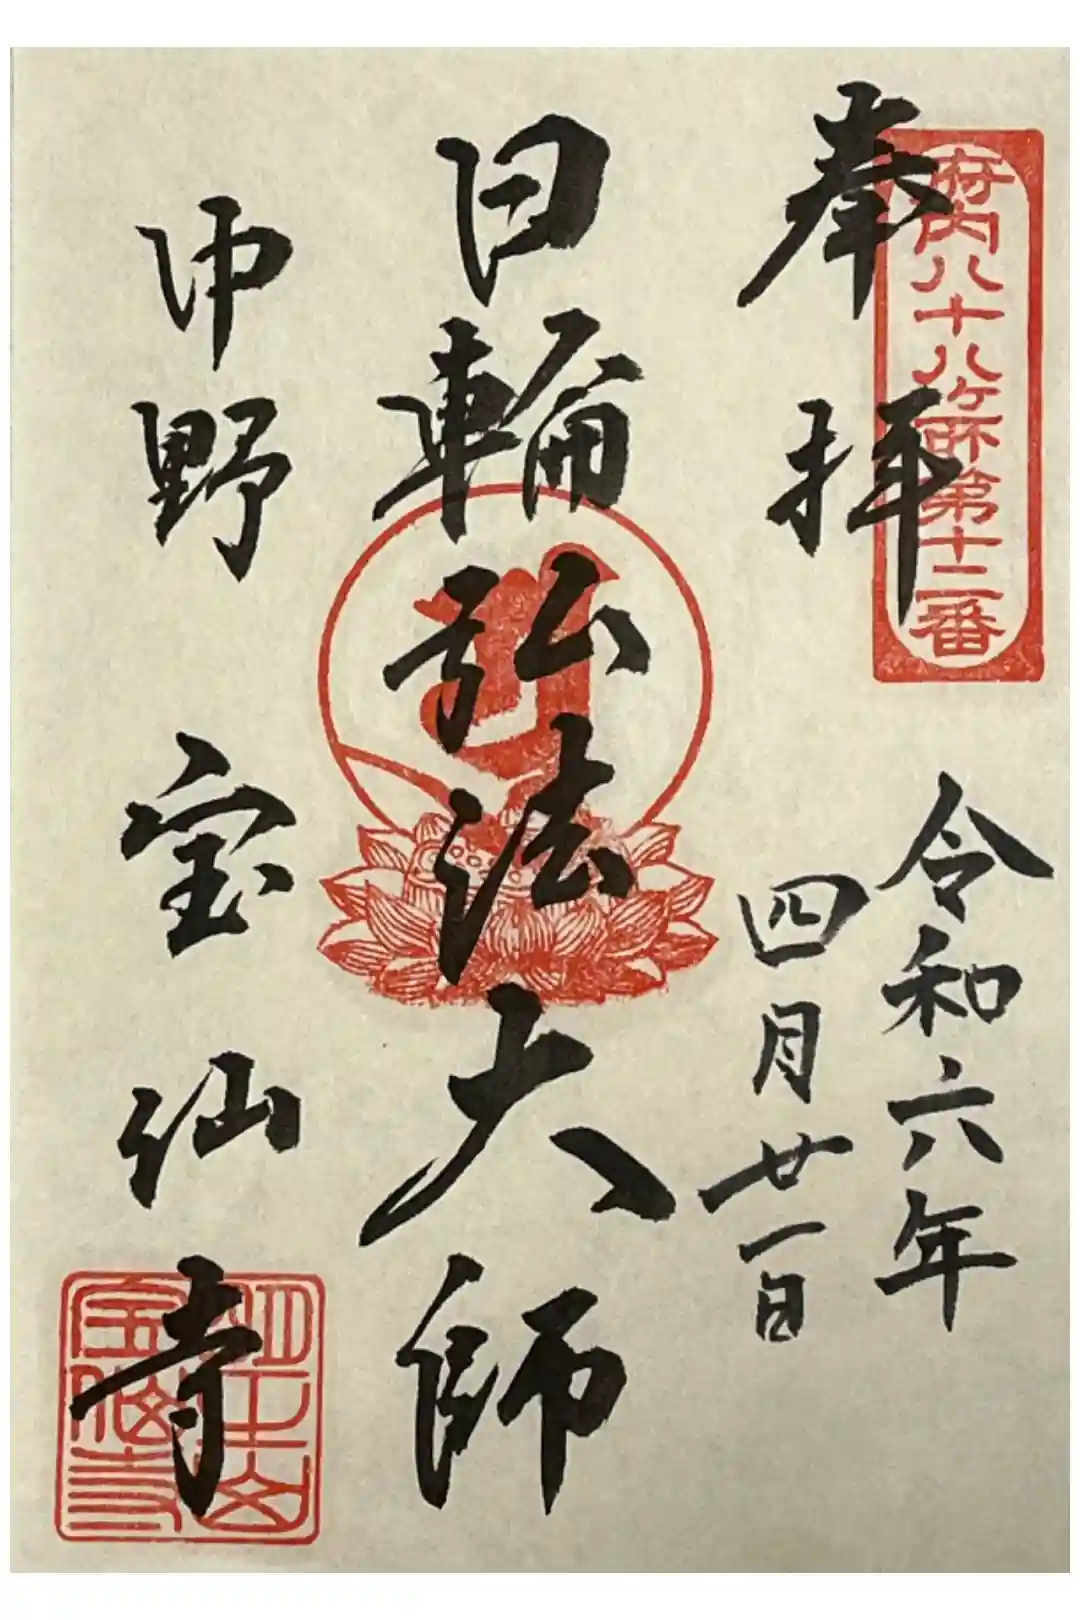 府内八十八ヶ所第十二番
奉拝
令和六年
四月廿一日
日輪弘法大師
中野
宝仙寺
明王山
宝仙寺